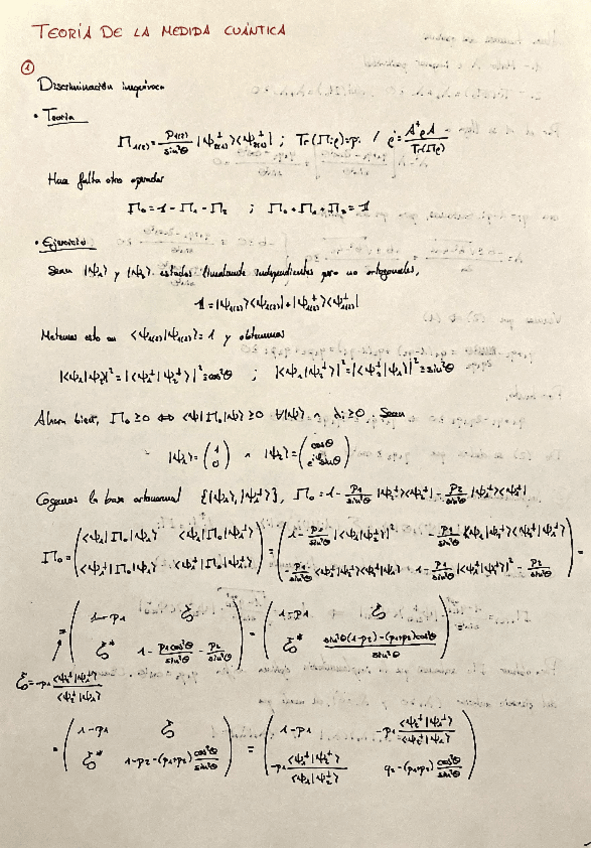 TEORÍA DE LA MEDIDA CUÁNTICA
①
Discriminación inequívoca
• Teoría
Π₁₍₂₎ = p₁₍₂₎/sin²θ |ψ₂₍₁₎^⊥⟩⟨ψ₂₍₁₎^⊥| ; Tr(Πᵢρ)=pᵢ / ρ̃ = A†ρA/Tr(Πρ)
Hace falta otro operador
Π₀ = 1 - Π₁ - Π₂ ; Π₀+Π₁+Π₂ = 1
• Ejercicio
Sean |ψ₁⟩ y |ψ₂⟩ estados linealmente independientes pero no ortogonales,
1 = |ψ₁₍₂₎⟩⟨ψ₁₍₂₎| + |ψ₁₍₂₎^⊥⟩⟨ψ₁₍₂₎^⊥|
Metemos esto en ⟨ψ₁₍₂₎|ψ₁₍₂₎⟩ = 1 y obtenemos
|⟨ψ₁|ψ₂⟩|² = |⟨ψ₁^⊥|ψ₂^⊥⟩|² = cos²θ ; |⟨ψ₁|ψ₂^⊥⟩|² = |⟨ψ₁^⊥|ψ₂⟩|² = sin²θ
Ahora bien, Π₀ ≥ 0 ⇔ ⟨ψ|Π₀|ψ⟩ ≥ 0 ∀|ψ⟩ ∧ λᵢ ≥ 0. Sean
|ψ₁⟩ = (1 0) ∧ |ψ₂⟩ = (cosθ e^{iφ}sinθ)
Cogemos la base ortonormal {|ψ₁⟩, |ψ₁^⊥⟩}, Π₀ = 1 - p₁/sin²θ |ψ₂^⊥⟩⟨ψ₂^⊥| - p₂/sin²θ |ψ₁^⊥⟩⟨ψ₁^⊥|
Π₀ = (⟨ψ₁|Π₀|ψ₁⟩ ⟨ψ₁|Π₀|ψ₁^⊥⟩ ; ⟨ψ₁^⊥|Π₀|ψ₁⟩ ⟨ψ₁^⊥|Π₀|ψ₁^⊥⟩) = (1 - p₁/sin²θ |⟨ψ₁|ψ₂^⊥⟩|² - p₁/sin²θ ⟨ψ₁|ψ₂^⊥⟩⟨ψ₂^⊥|ψ₁^⊥⟩ ; - p₁/sin²θ ⟨ψ₁^⊥|ψ₂^⊥⟩⟨ψ₂^⊥|ψ₁⟩ 1 - p₁/sin²θ |⟨ψ₁^⊥|ψ₂^⊥⟩|² - p₂/sin²θ) =
= (1-p₁ ξ ; ξ* 1 - p₁cos²θ/sin²θ - p₂/sin²θ) = (1-p₁ ξ ; ξ* sin²θ(1-p₂)-(p₁+p₂)cos²θ/sin²θ) =
ξ = -p₁ ⟨ψ₂^⊥|ψ₁^⊥⟩/⟨ψ₂^⊥|ψ₁⟩
= (1-p₁ ξ ; ξ* 1-p₂-(p₁+p₂) cos²θ/sin²θ) = (1-p₁ -p₁ ⟨ψ₂^⊥|ψ₁^⊥⟩/⟨ψ₂^⊥|ψ₁⟩ ; -p₁ ⟨ψ₁^⊥|ψ₂^⊥⟩/⟨ψ₁|ψ₂^⊥⟩ q₂-(p₁+p₂) cos²θ/sin²θ)